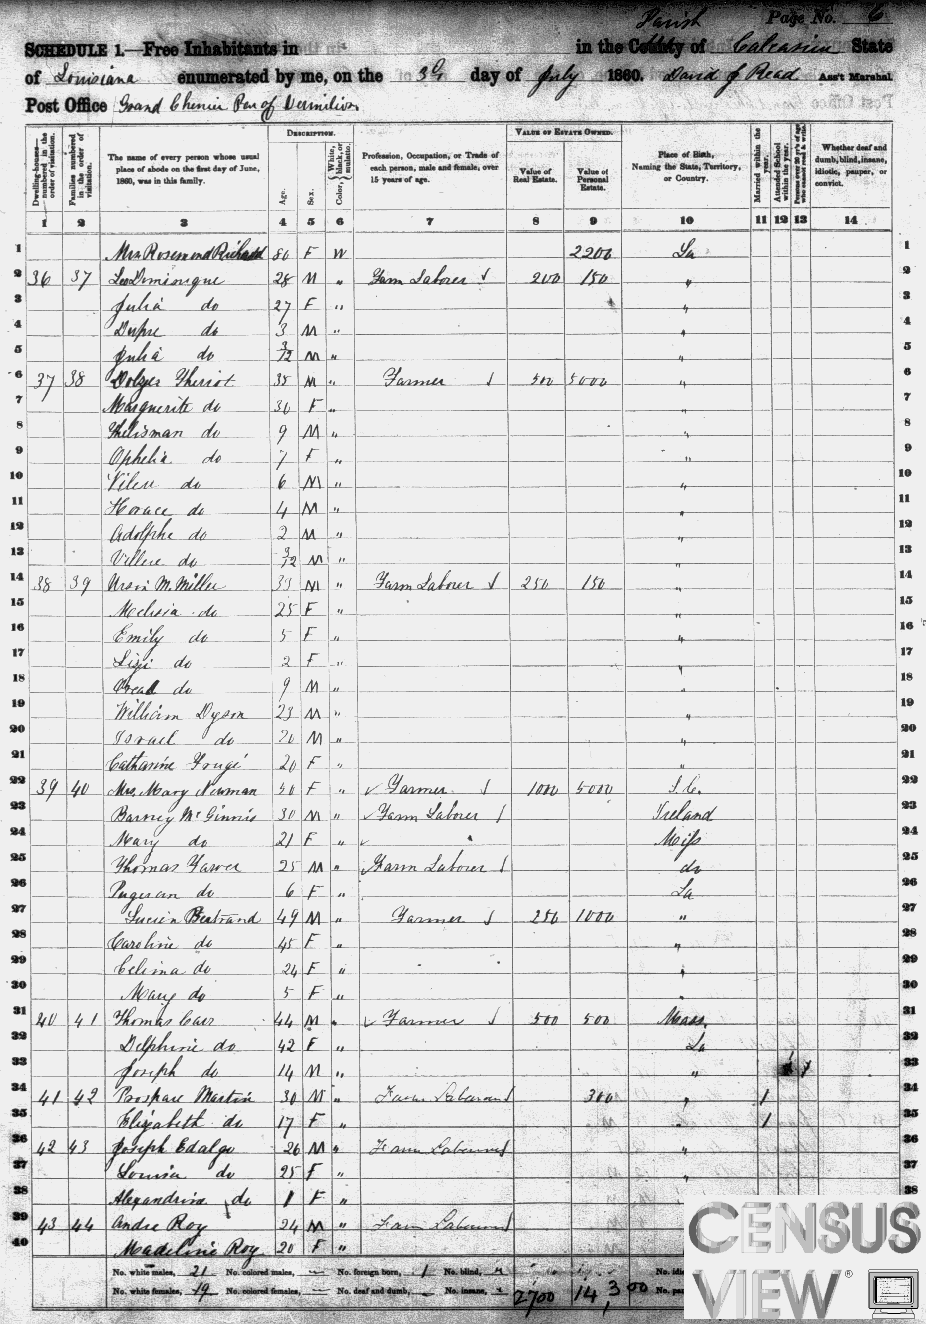 Page No. 6
SCHEDULE 1.—Free Inhabitants in in the County of Parish Calcasieu State
of Louisiana enumerated by me, on the 30 day of July 1860. David J Read Ass't Marshal
Post Office Grand Chenier Par of Vermilion
Dwelling-houses—numbered in the order of visitation.
Families numbered in the order of visitation.
The name of every person whose usual place of abode on the first day of June, 1860, was in this family.
DESCRIPTION.
Age.
Sex.
Color, White, black, or mulatto.
Profession, Occupation, or Trade of each person, male and female, over 15 years of age.
VALUE OF ESTATE OWNED.
Value of Real Estate.
Value of Personal Estate.
Place of Birth, Naming the State, Territory, or Country.
Married within the year.
Attended School within the year.
Persons over 20 y'rs of age who cannot read & write.
Whether deaf and dumb, blind, insane, idiotic, pauper, or convict.
1 2 3 4 5 6 7 8 9 10 11 12 13 14
1 Mrs Rosemond Richard 80 F W 2200 La 1
2 36 37 Leo Dominique 28 M " Farm Laborer 200 150 " 2
3 Julia do 27 F " " 3
4 Dupre do 3 M " " 4
5 Julia do 3/12 M " " 5
6 37 38 Theriot 35 M " Farmer 500 5000 " 6
7 Marguerite do 30 F " " 7
8 Thelisman do 9 M " " 8
9 Ophelia do 7 F " " 9
10 do 6 M " " 10
11 Horace do 4 M " " 11
12 Adolphe do 2 M " " 12
13 Villere do 3/12 M " " 13
14 38 39 Ursin M. Miller 35 M " Farm Laborer 250 150 " 14
15 Melisia do 25 F " " 15
16 Emily do 5 F " " 16
17 Lizi do 2 F " " 17
18 do 9 M " " 18
19 William Dyson 23 M " " 19
20 Israel do 20 M " " 20
21 Catharine Frugé 20 F " " 21
22 39 40 Mrs Mary Newman 50 F " Farmer 1000 5000 S.C. 22
23 Barney McGinnis 30 M " Farm Laborer Ireland 23
24 Mary do 21 F " Miss 24
25 Thomas 25 M " Farm Laborer do 25
26 do 6 F " La 26
27 Lucien Bertrand 49 M " Farmer 250 1000 " 27
28 Caroline do 45 F " " 28
29 Celima do 24 F " " 29
30 Mary do 5 F " " 30
31 40 41 Thomas Carr 44 M " Farmer 500 500 Mass. 31
32 Delphine do 42 F " La 32
33 Joseph do 14 M " " 1 33
34 41 42 Prospare Martin 30 M " Farm Laborer 300 " 1 34
35 Elizabeth do 17 F " " 1 35
36 42 43 Joseph Edalgo 26 M " Farm Laborer " 36
37 Louisa do 25 F " " 37
38 Alexandrina do 1 F " 38
39 43 44 Andre Roy 24 M " Farm Laborer
40 Madeline Roy 20 F "
No. white males, 21 No. colored males, — No. foreign born, 1 No. blind,
No. white females, 19 No. colored females, — No. deaf and dumb, — No. insane, 2700 14,300
CENSUS
VIEW®